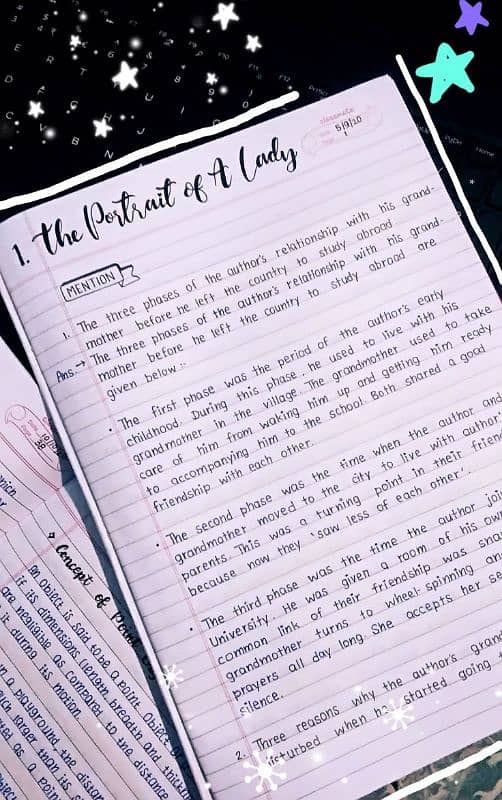 classmate
Date 5/9/20
Page 1
1. The Portrait of A Lady
MENTION
1. The three phases of the author's relationship with his grand-
mother before he left the country to study abroad
Ans.→ The three phases of the author's relationship with his grand-
mother before he left the country to study abroad are
given below :-
• The first phase was the period of the author's early
childhood. During this phase, he used to live with his
grandmother in the village. The grandmother used to take
care of him from waking him up and getting him ready
to accompanying him to the school. Both shared a good
friendship with each other.
• The second phase was the time when the author and
grandmother moved to the city to live with author
parents. This was a turning point in their frien
because now they 'saw less of each other'.
• The third phase was the time the author joi
University. He was given a room of his ow
common link of their friendship was sna
grandmother turns to wheel-spinning an
prayers all day long. She accepts her se
silence.
2. Three reasons why the author's gra
disturbed when he started going t
→ Concept of
An object is said to be a point object
if its dimensions (length, breadth and thick
are negligible as compared to the distance
it during its motion.
in a playground the distan
much larger than its